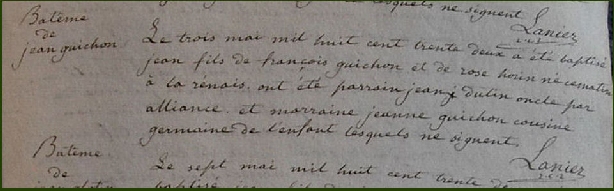 lesquels ne signent
Lanier
Batême
de
jean guichon
Le trois mai mil huit cent trente deux a été baptisé
jean fils de françois guichon et de rose horin né ce matin
à la rénais. ont été parrain jean dutin oncle par
alliance et marraine jeanne guichon cousine
germaine de l'enfant lesquels ne signent.
Lanier
Batême
de
Le sept mai mil huit cent trente de